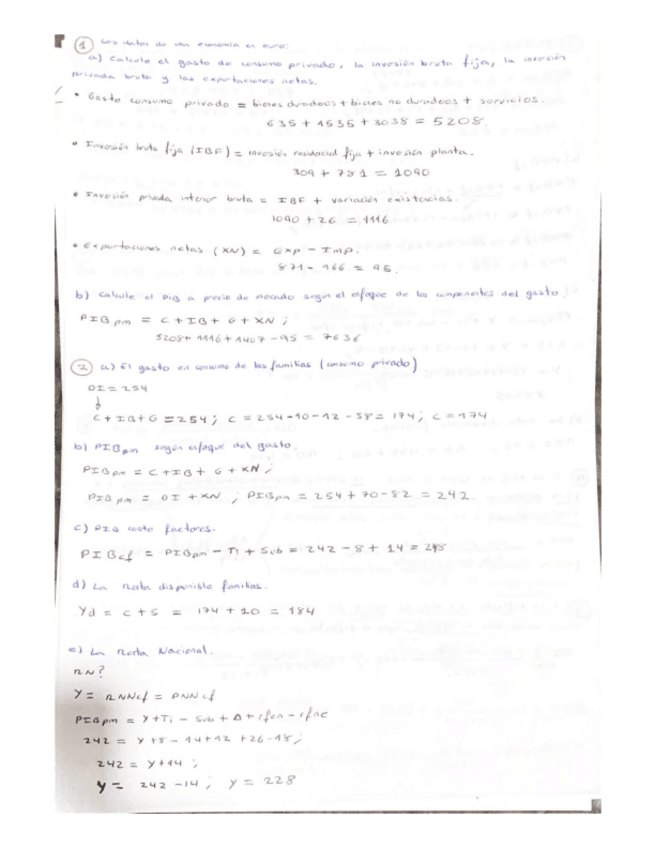 ① Los datos de una economía en euro:
a) Calcule el gasto de consumo privado, la inversión bruta fija, la inversión
privada bruta y las exportaciones netas.
• Gasto consumo privado = bienes duraderos + bienes no duraderos + servicios.
635 + 1535 + 3038 = 5208.
• Inversión bruta fija (IBF) = inversión residencial fija + inversión planta.
309 + 781 = 1090
• Inversión privada interior bruta = IBF + variación existencias.
1090 + 26 = 1116
• Exportaciones netas (XN) = Exp - Imp.
871 - 966 = 95.
b) Calcule el PIB a precio de mercado según el enfoque de los componentes del gasto
PIBpm = C + IB + G + XN ;
5208 + 1116 + 1407 - 95 = 7636
② a) El gasto en consumo de las familias (consumo privado)
DI = 254
↓
C + IB + G = 254 ; C = 254 - 10 - 12 - 58 = 174 ; C = 174
b) PIBpm según enfoque del gasto.
PIBpm = C + IB + G + XN ;
PIBpm = DI + XN ; PIBpm = 254 + 70 - 82 = 242.
c) PIB coste factores.
PIBcf = PIBpm - Ti + Sub = 242 - 8 + 14 = 248
d) La renta disponible familias.
Yd = C + S = 174 + 10 = 184
e) La Renta Nacional.
RN?
Y = RNNcf = PNNcf
PIBpm = Y + Ti - Sub + D + rfen - rfne
242 = Y + 8 - 14 + 12 + 26 - 18 ;
242 = Y + 14 ;
Y = 242 - 14 ; Y = 228